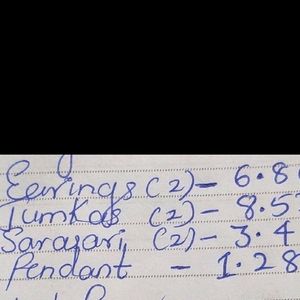 Earings (2) - 6.8
Jumkas (2) - 8.5
Sarasari (2) - 3.4
Pendant - 1.28